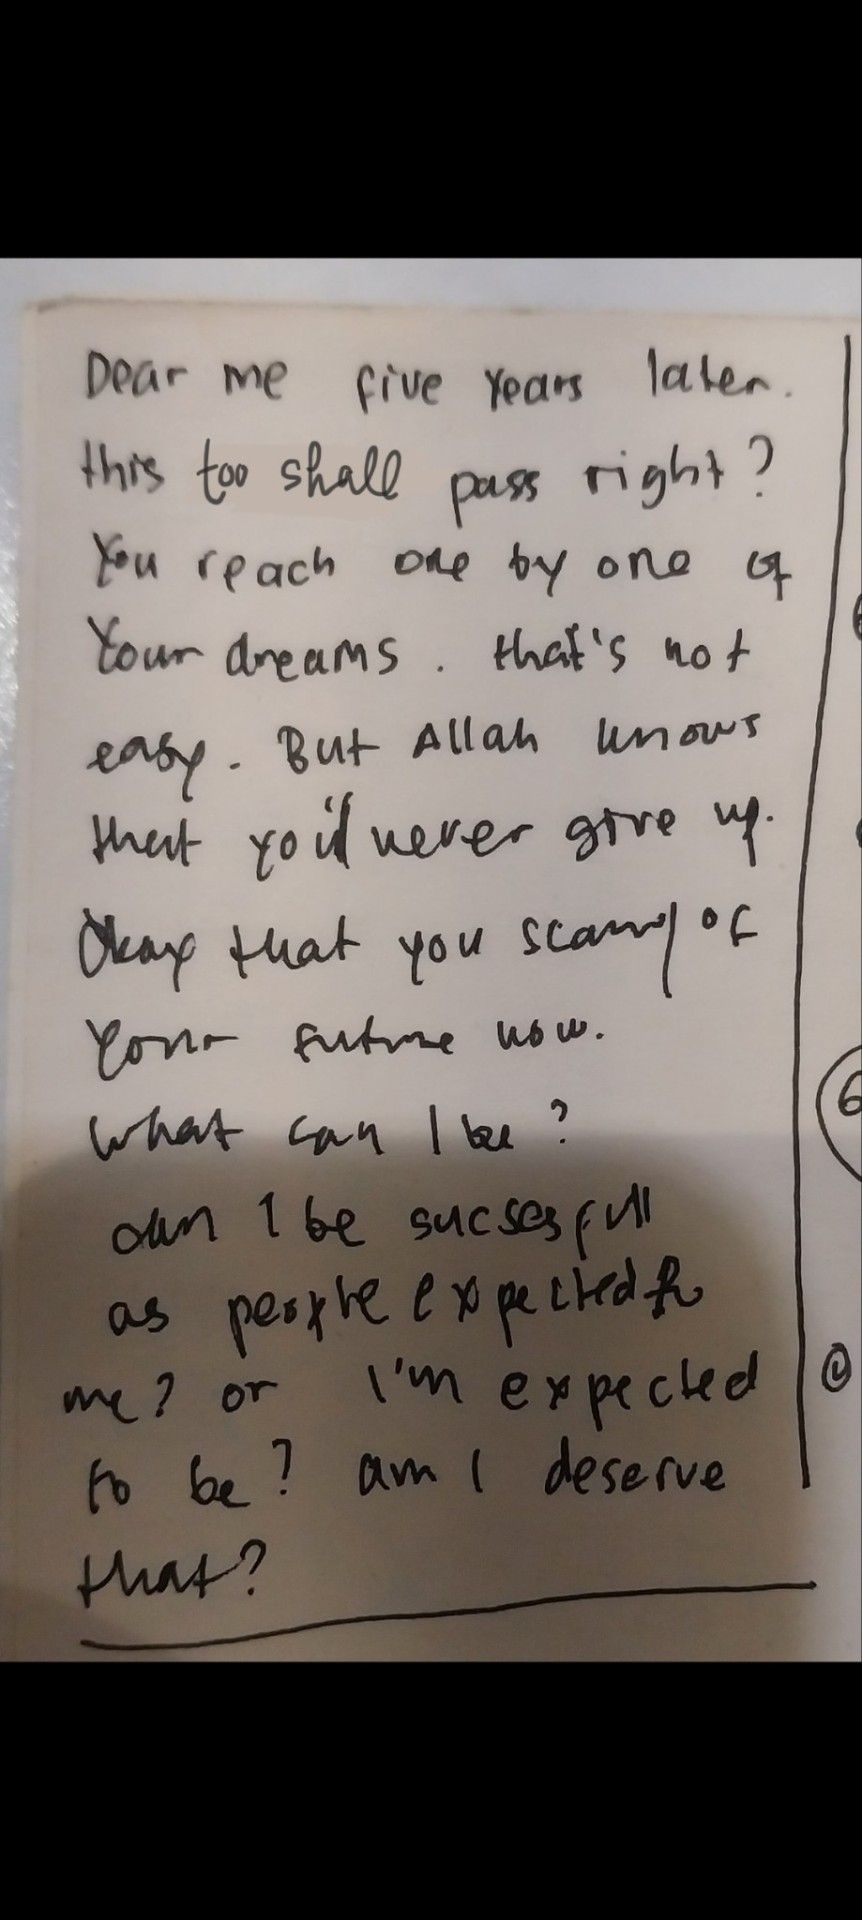 Dear me five years later.
this too shall pass right?
You reach one by one of
Your dreams. that's not
easy. But Allah knows
that you'll never give up.
Okay that you scary of
your future now.
What can I be?
can I be sucsesfull
as people expected to
me? or I'm expected
to be? am I deserve
that?
6